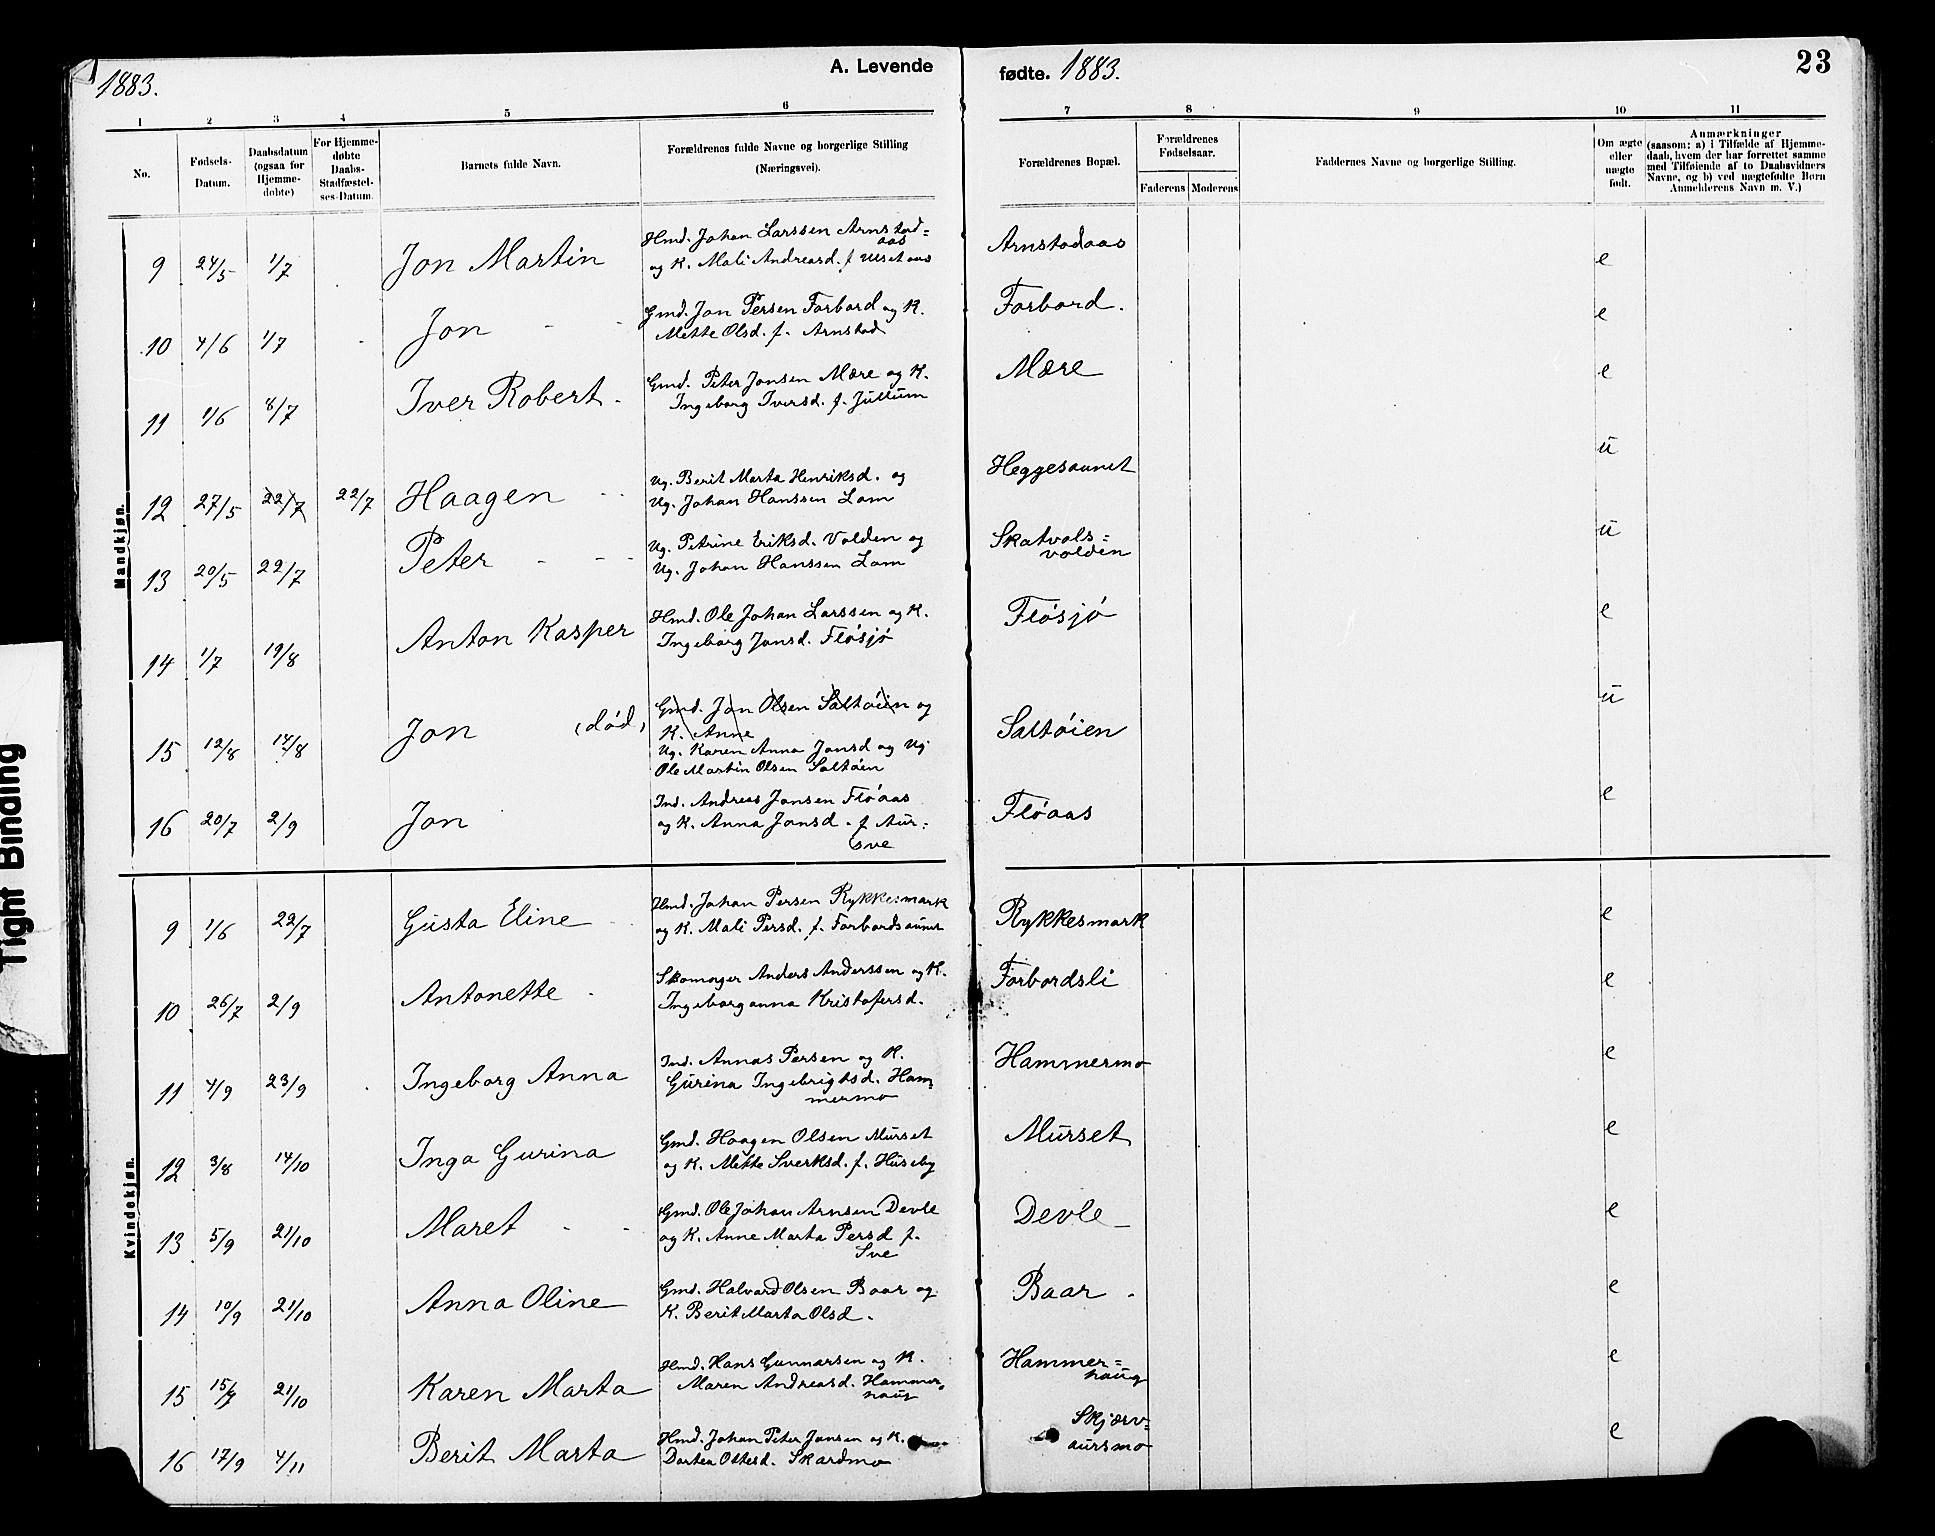 1883.
A. Levende
fødte. 1883.
23
1 2 3 4 5 6 7 8 9 10 11
No.
Fødsels-
Datum.
Daabsdatum
(ogsaa for
Hjemme-
døbte)
For Hjemme-
døbte
Daabs-
Stadfæstel-
ses-Datum.
Barnets fulde Navn.
Forældrenes fulde Navne og borgerlige Stilling
(Næringsvei).
Forældrenes Bopæl.
Forældrenes
Fødselsaar.
Faderens Moderens
Faddernes Navne og borgerlige Stilling.
Om ægte
eller
uægte
født.
Anmærkninger
(saasom: a) i Tilfælde af Hjemme-
daab, hvem der har forrettet samme
med Tilføiende af to Daabsvidners
Navne, og b) ved uægtefødte Børn
Anmelderens Navn m. V.)
Mandkjøn.
Hmd. Johan Larssen Arnstad=
aas
9 24/5 1/7 Jon Martin og K. Mali Andreasd. f Ulset aas Arnstadaas e
Gmd. Jon Persen Forbord og K.
10 4/6 1/7 Jon Mette Olsd. f. Arnstad Forbord. e
Gmd. Peter Jonsen Mære og K.
11 1/6 8/7 Iver Robert. Ingeborg Iversd. f. Jullum Mære e
Ug. Berit Marta Henriksd. og
12 27/5 22/7 22/7 Haagen Ug. Johan Hanssen Lam Heggesaunet u
Ug. Petrine Eriksd. Volden og
13 20/5 22/7 Peter Ug. Johan Hanssen Lam Skatvals=
volden u
Hmd. Ole Johan Larssen og K.
14 1/7 19/8 Anton Kasper Ingeborg Jonsd. Fløsjø Fløsjø e
Gmd. Jon Olsen Saltøien og
K. Anne
15 12/8 14/8 Jon (død) Ug. Karen Anna Jonsd og Ug.
Ole Martin Olsen Saltøien Saltøien u
Ind. Andreas Jonsen Fløaas
16 20/7 2/9 Jon og K. Anna Jonsd. f Aur=
sve Fløaas e
Kvindekjøn.
Hmd. Johan Persen Rykkesmark
9 1/6 22/7 Gusta Eline og K. Mali Persd. f. Forbordsaunet Rykkesmark e
Skomager Anders Anderssen og K.
10 26/7 2/9 Antonette Ingeborganna Kristofersd. Forbordsli e
Ind. Annas Persen og K.
11 4/9 23/9 Ingeborg Anna Gurina Ingebrigtsd. Ham=
mermo Hammermo e
Gmd. Haagen Olsen Murset
12 3/8 14/10 Inga Gurina og K. Mette Sverksd. f. Huseby Murset e
Gmd. Ole Johan Arnsen Devle
13 5/9 21/10 Maret og K. Anne Marta Persd f.
Sve Devle e
Gmd. Halvard Olsen Baar og
14 10/9 21/10 Anna Oline K. Berit Marta Olsd. Baar e
Hmd. Hans Gunnarsen og K.
15 15/7 21/10 Karen Marta Maren Andreasd. Hammer=
haug Hammer=
haug e
Hmd. Johan Peter Jonsen og K.
16 17/9 4/11 Berit Marta Dortea Ottesd. Skardmo Skjærv=
aursmo e
Tight Binding